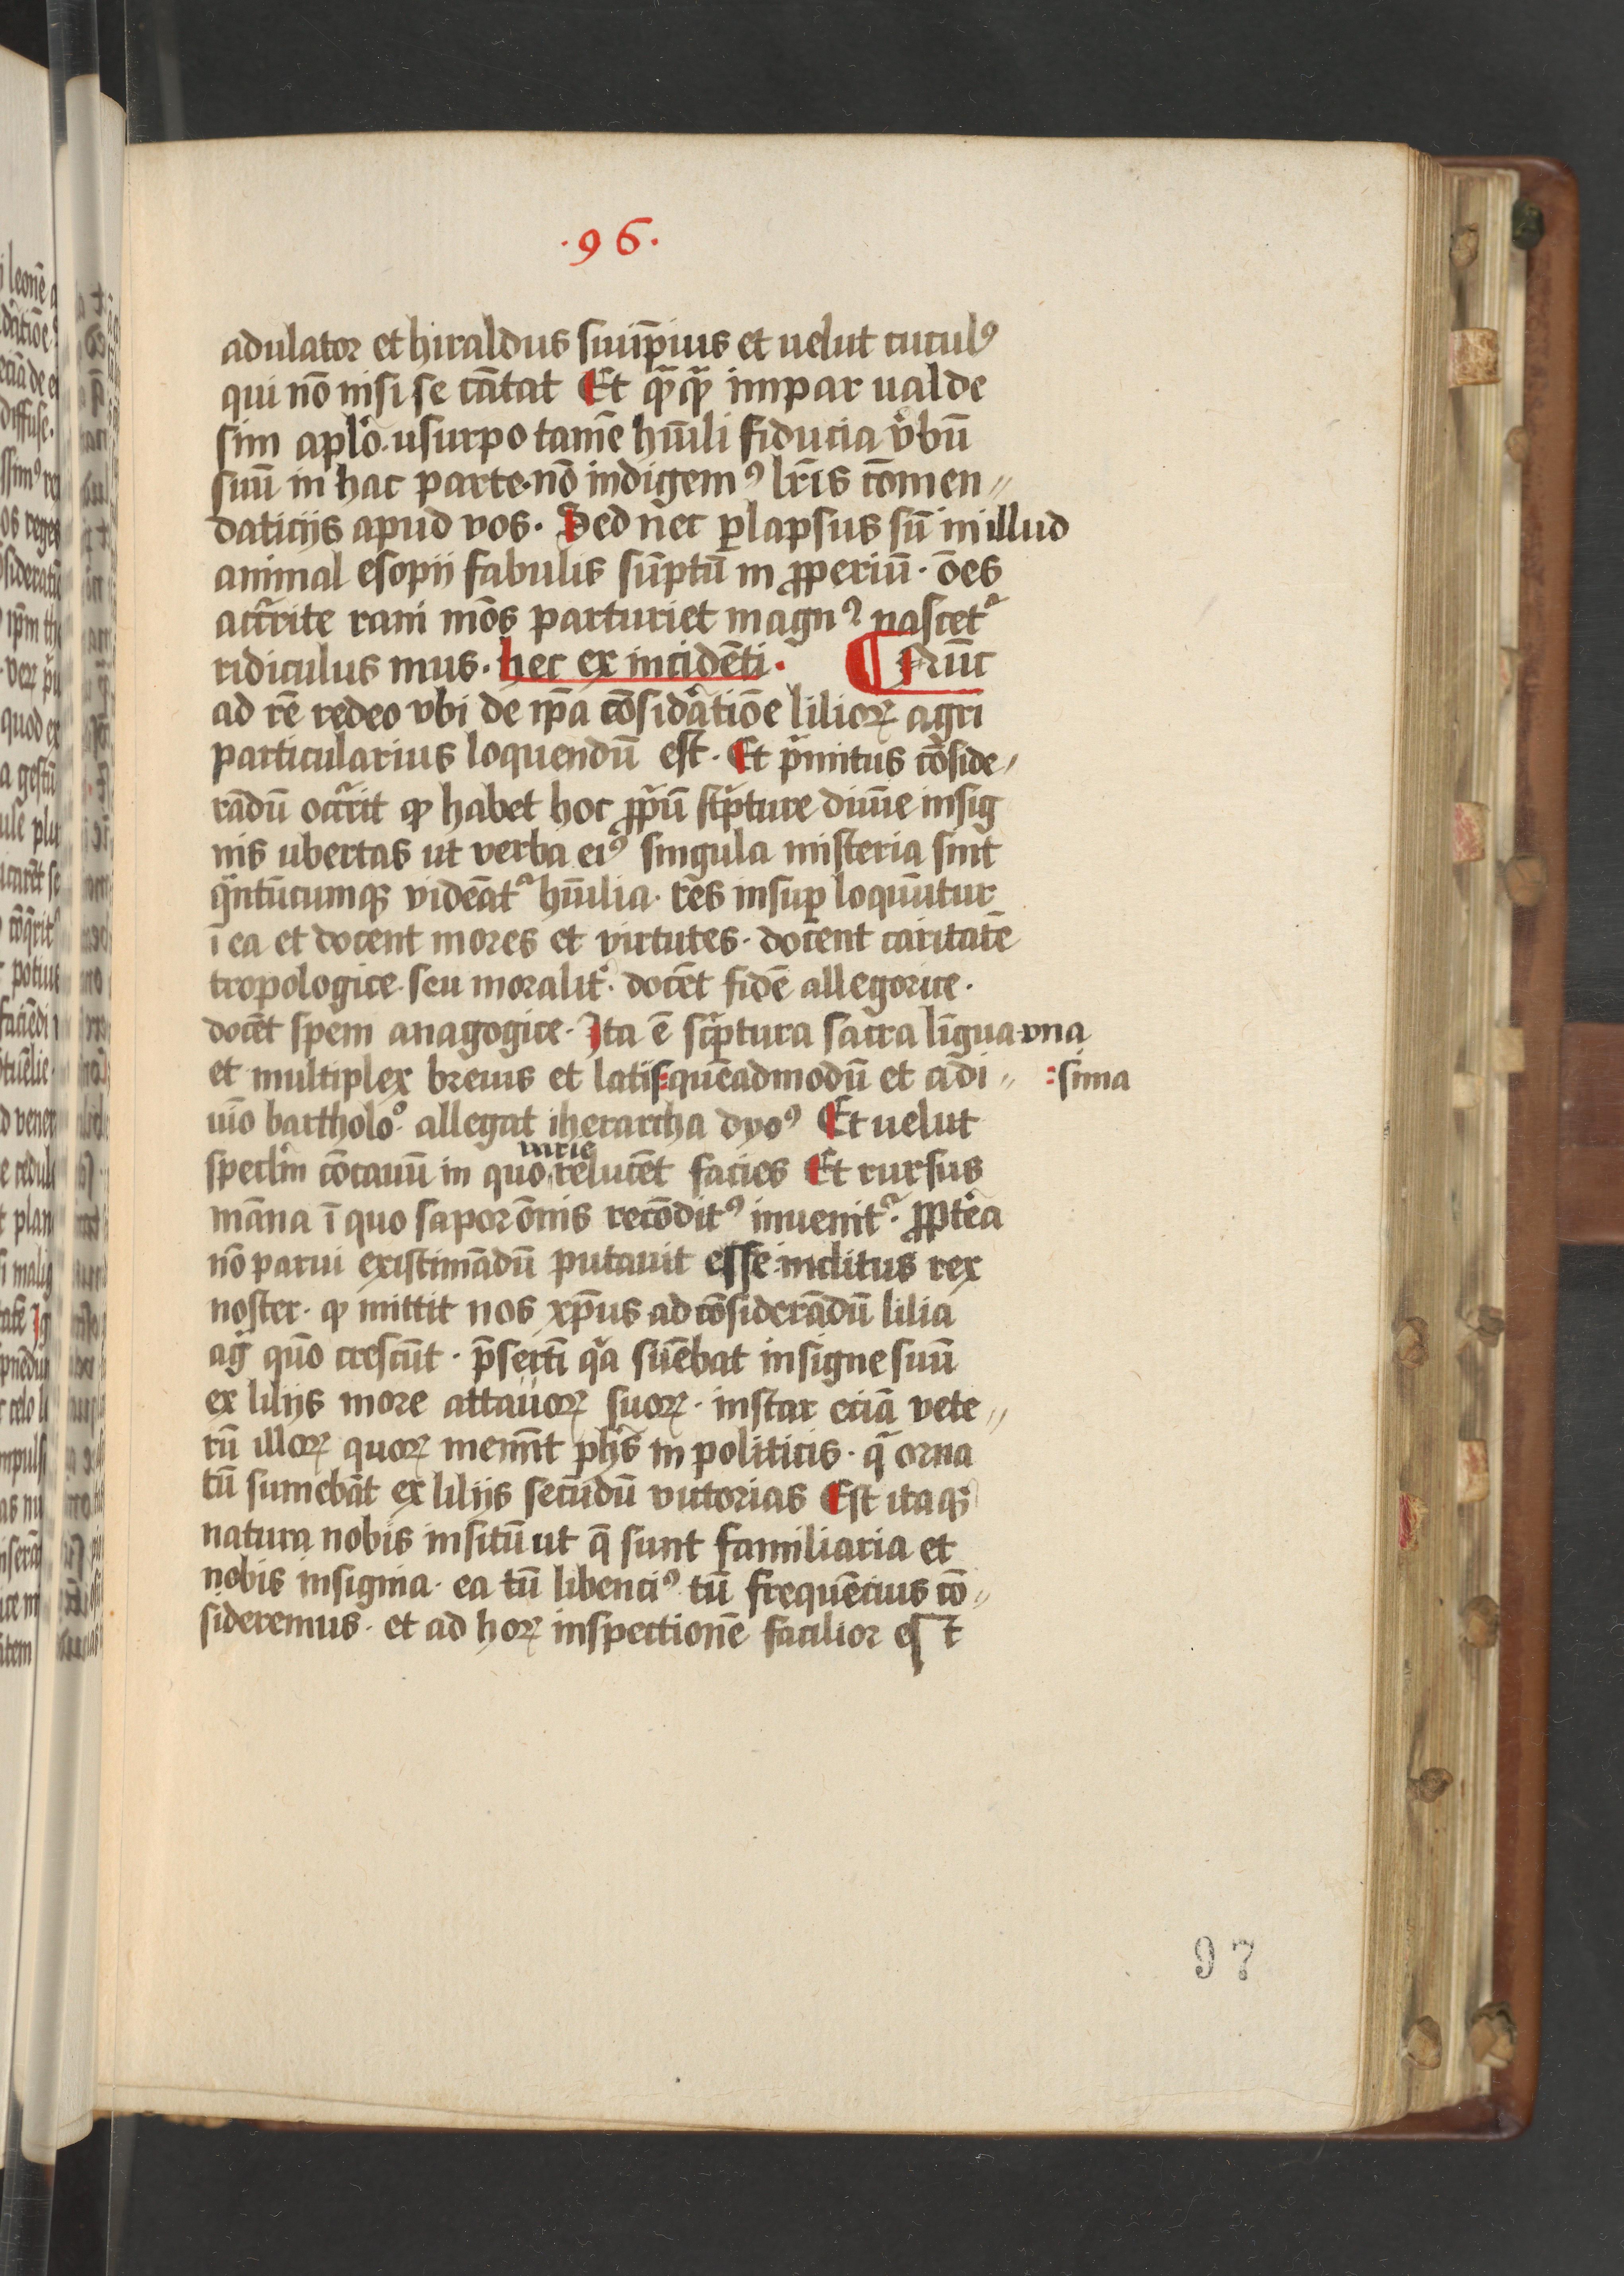 ·96·
adulator et hiraldus suiip̄ius et uelut cucul⁹
qui nō nisi se cātat Et qᷓqᷓ impar ualde
sim aplo᷒· usurpo tamē hūili fiducia v̉bū
suū in hac parte· nō indigem⁹ lr̄is cōmen〃
daticijs apud vos· Sed nec ꝑlapsus sū in illud
animal esopij fabulis sūptū in ꝓperiū· ōes
accr̄rite rani mōs parturiet magn⁹ nascetᷣ
ridiculus mus· hec ex incidēti· ¶ Nūc
ad rē redeo vbi de ip̄a cōsidᷓatiōe lilioꝝ agri
particularius loquendū est· Et pⁱmitus cōside〃
rādū occᷣrit ꝙ habet hoc ꝓpⁱū scⁱpture diuīe insig
nis ubertas ut verba ei⁹ singula misteria sint
qᷓntūcumqꝫ videātᷣ hūilia· res insuꝑ loquūtur
ī ea et docent mores et virtutes· docent caritatē
tropologice· seu moralitᷣ· docēt fidē allegorice·
docēt spem anagogice· Ita ē scⁱptura sacra lingua vna
et multiplex breuis et latis꞉ quēadmodū et a di〃 ꞉sima
uīo bartholo⁰· allegat iherarcha dyo⁹ Et uelut
varie
specl̄m cōcauū in quo relucēt facies Et rursus
māna ī quo sapor ōmīs recōdit⁹ inuenitᷣ· ꝓpt̉ea
nō parui existimādū putauit esse inclitus rex
noster· ꝙ mittit nos xp̄us ad cōsiderādū lilia
agⁱ quō crescūt· p̄sertī qⁱa suēbat insigne suū
ex lilijs more attauoꝝ suoꝝ· instar eciā vete〃
rū illoꝝ quoꝝ memīt ph̄s in politicis· qⁱ orna
tū sumebāt ex lilijs secūdū victorias Est itaqꝫ
natura nobis insitū ut q̄ sunt familiaria et
nobis insignia· ea tū libenci⁹ tū frequēcius cō〃
sideremus· et ad hoꝝ inspectionē facilior est
97